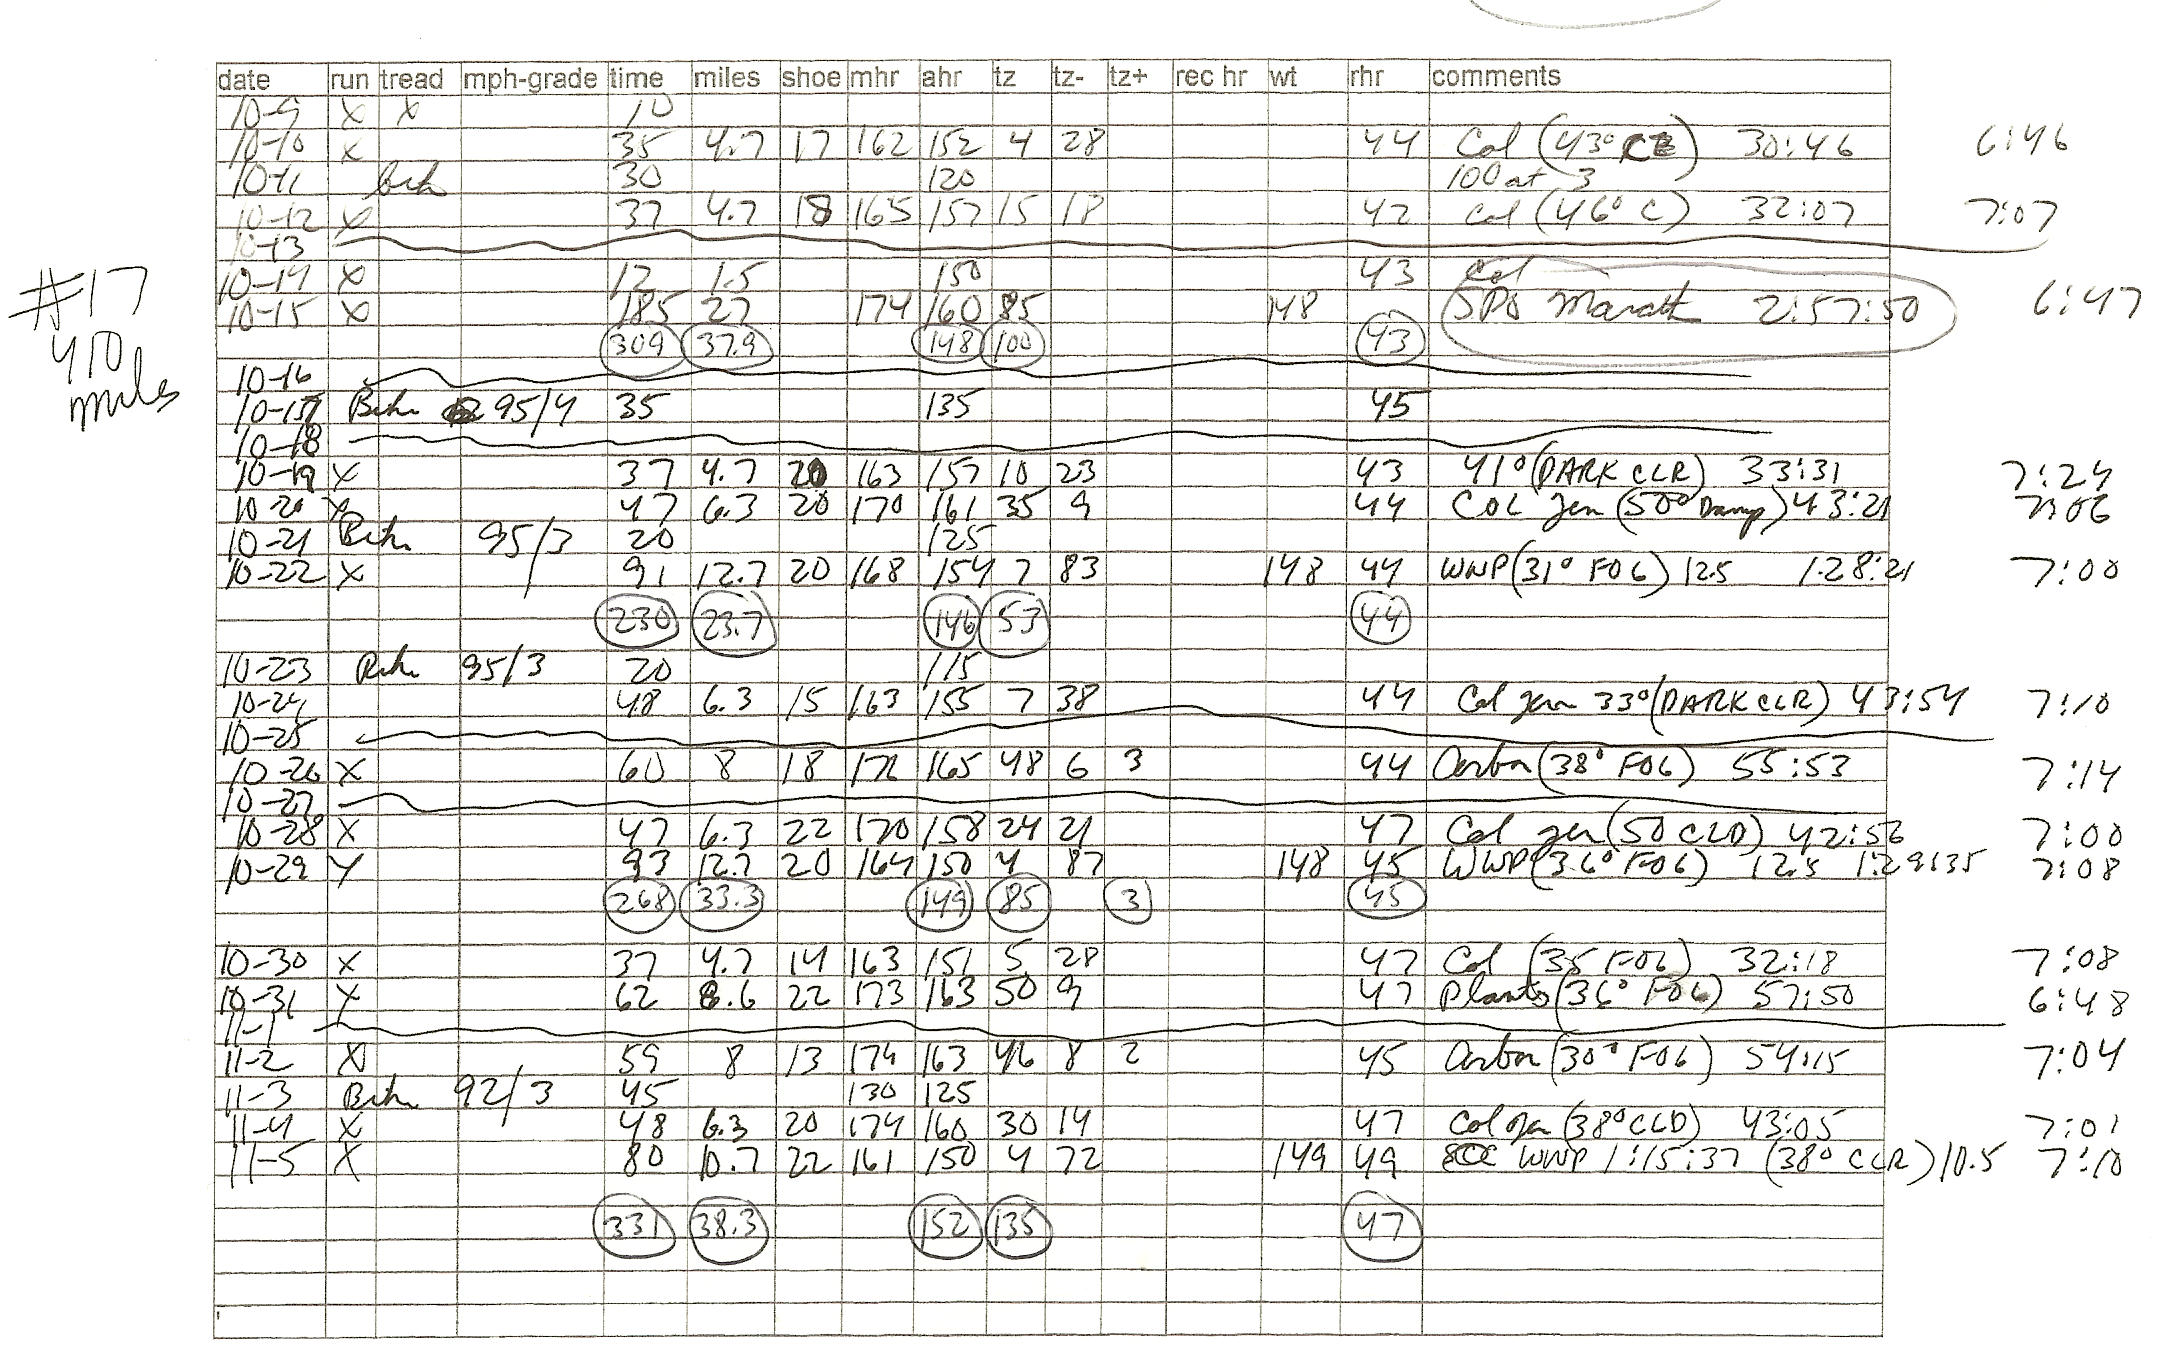 date run tread mph-grade time miles shoe mhr ahr tz tz- tz+ rec hr wt rhr comments
10-9 X X 10
10-10 X 35 4.7 17 162 152 4 28 44 Col (43° ) 30:46 6:46
10-11 30 120 100 at 3
10-12 X 37 4.7 18 165 157 15 18 42 Col (46° C) 32:07 7:07
10-13
10-14 X 12 1.5 150 43 Col
#17
410
miles
10-15 X 185 27 174 160 85 148 Marath 2:57:50 6:47
309 37.9 148 100 43
10-16
10-17 Bike 95/4 35 135 45
10-18
10-19 X 37 4.7 20 163 157 10 23 43 41° (DARK CLR) 33:31 7:24
10-20 X 47 6.3 20 170 161 35 9 44 COL Jen (50° Damp) 43:21 7:06
10-21 Bike 95/3 20 125
10-22 X 91 12.7 20 168 154 7 83 148 44 WWP (31° FOG) 12.5 1:28:21 7:00
230 23.7 146 53 44
10-23 Bike 95/3 20 115
10-24 48 6.3 15 163 155 7 38 44 Col Jen 33° (DARK CLR) 43:54 7:10
10-25
10-26 X 60 8 18 172 165 48 6 3 44 Arbor (38° FOG) 55:53 7:14
10-27
10-28 X 47 6.3 22 170 158 24 21 47 Col Jen (50 CLD) 42:56 7:00
10-29 X 93 12.7 20 164 150 4 87 148 45 WWP (36° FOG) 12.5 1:29:35 7:08
268 33.3 149 85 3 45
10-30 X 37 4.7 14 163 151 5 28 47 Col (35 FOG) 32:18 7:08
10-31 X 62 8.6 22 173 163 50 9 47 Plants (36° FOG) 57:50 6:48
11-1
11-2 X 59 8 13 174 163 46 8 2 45 Arbor (30° FOG) 54:15 7:04
11-3 Bike 92/3 45 130 125
11-4 X 48 6.3 20 174 160 30 14 47 Col Jen (38° CLD) 43:05 7:01
11-5 X 80 10.7 22 161 150 4 72 149 49 WWP 1:15:37 (38° CLR) 10.5 7:10
331 38.3 152 135 47